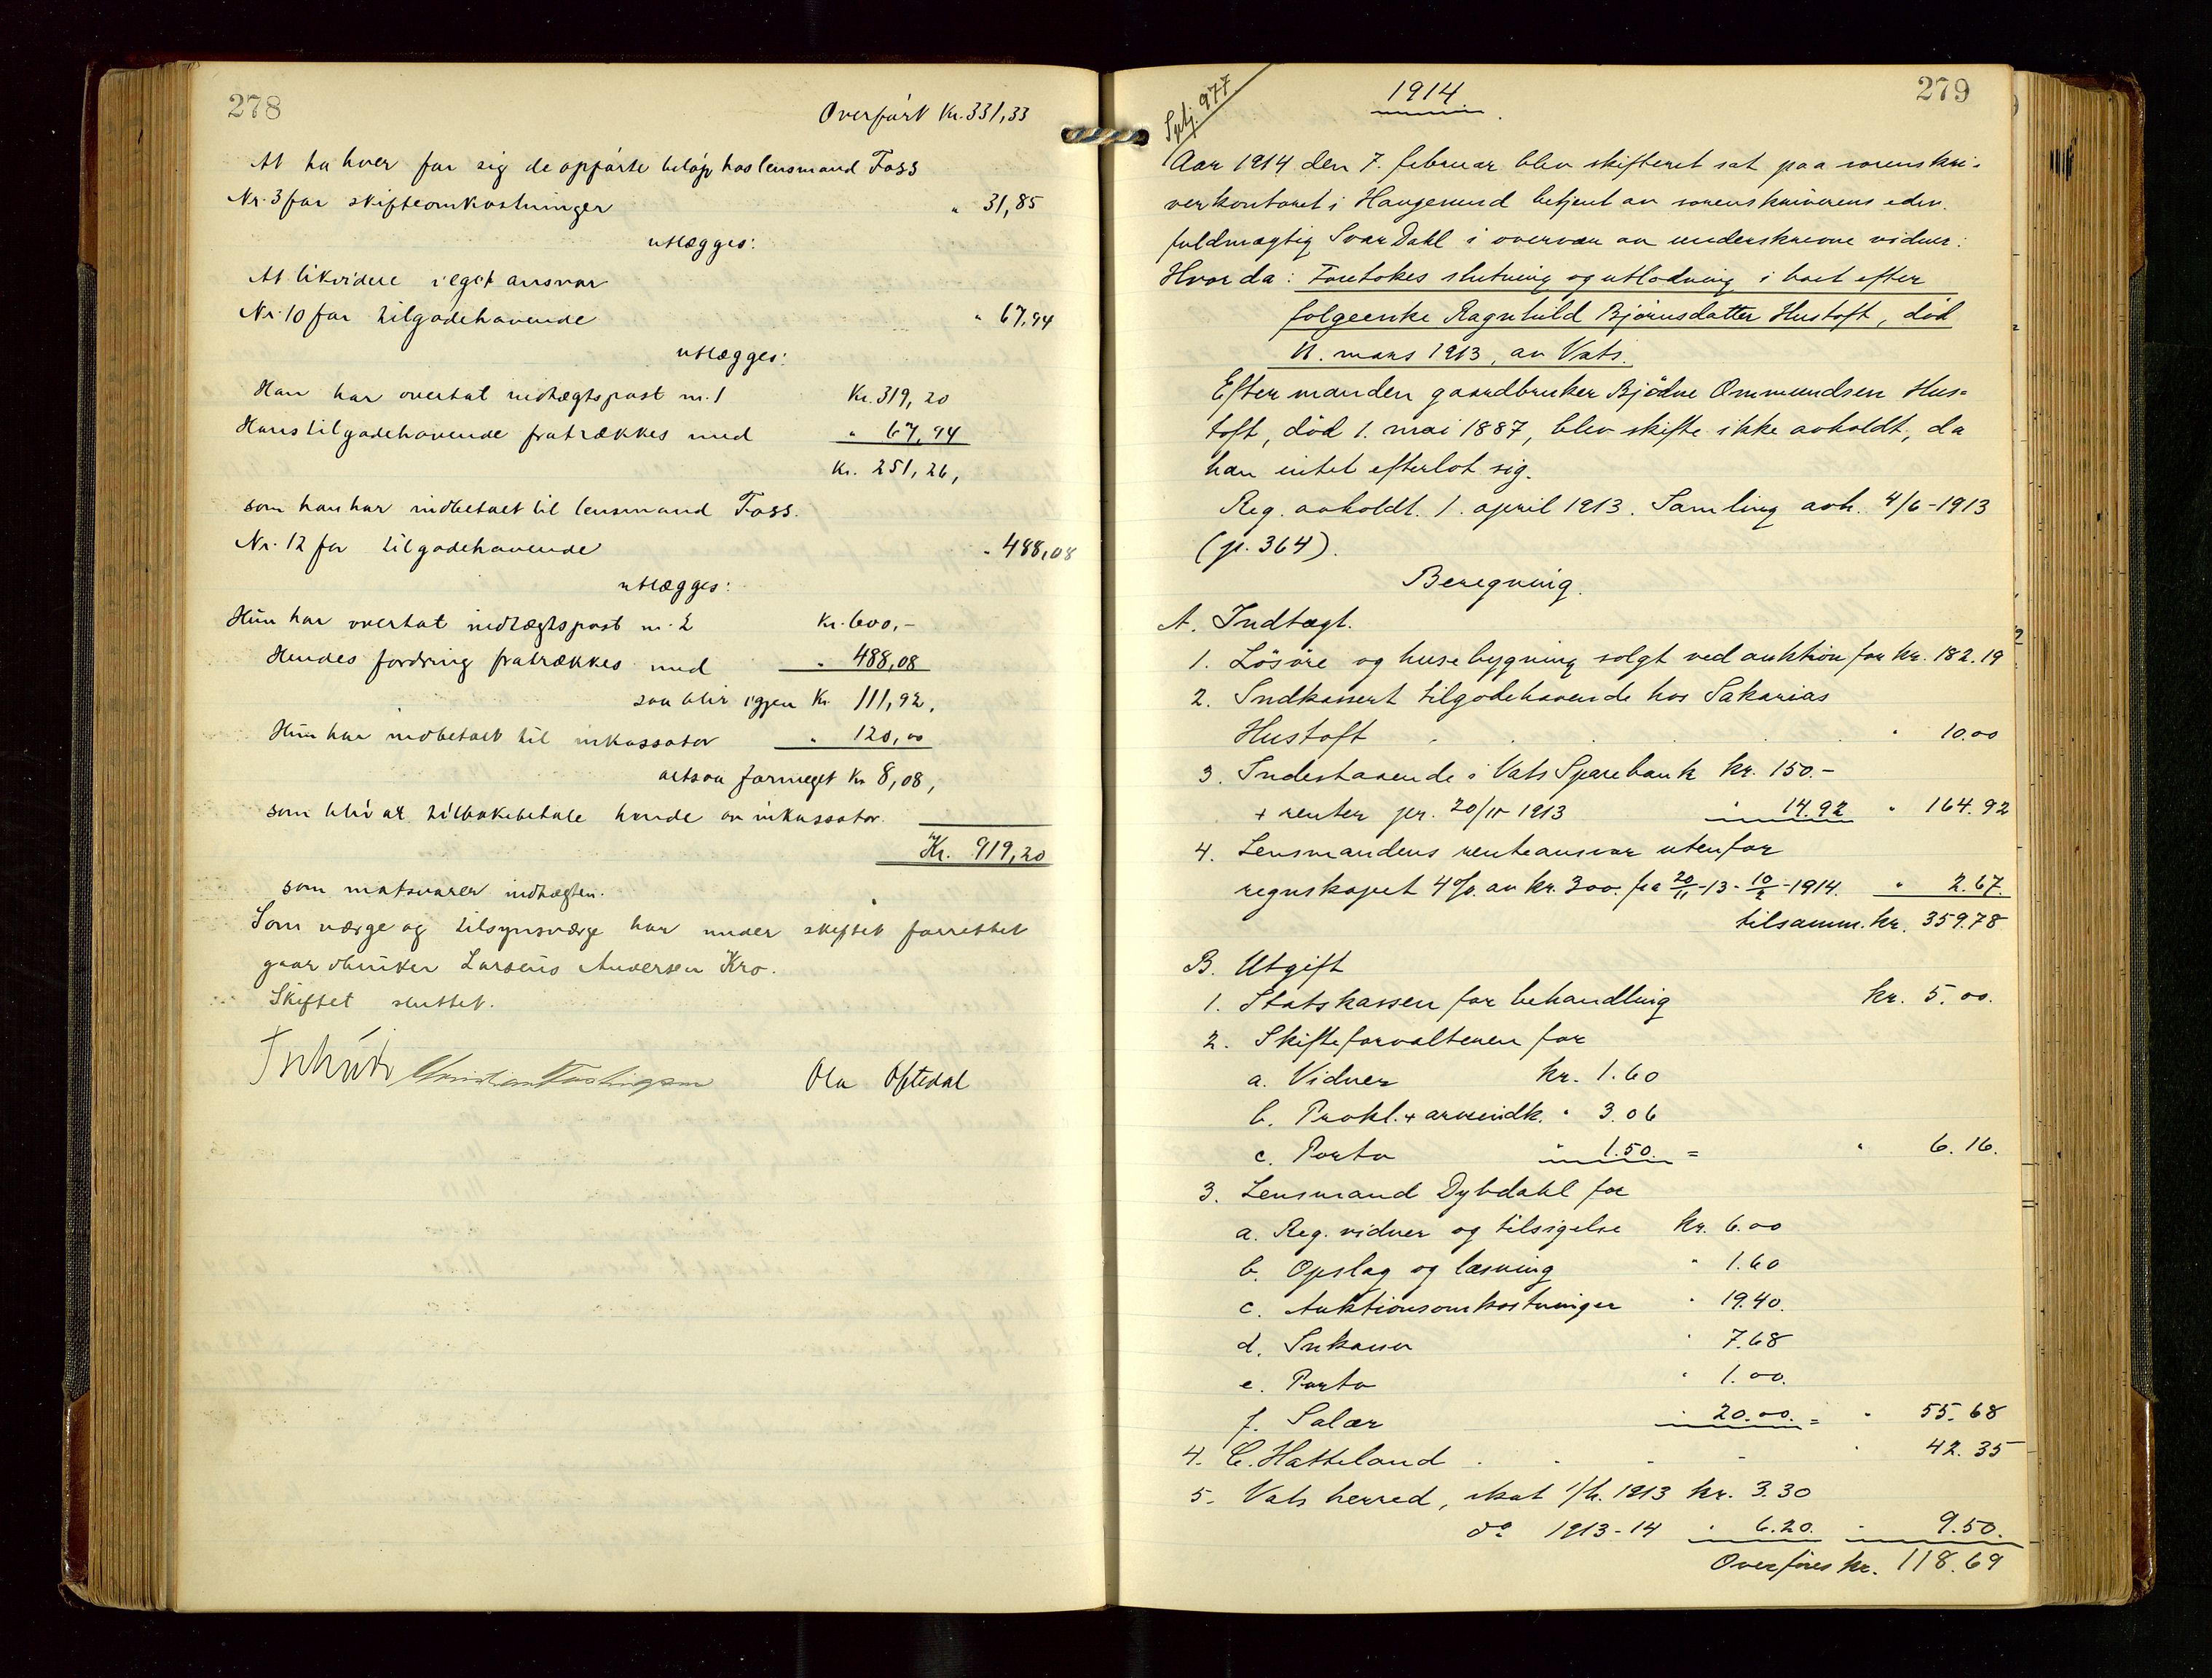 278
Overført Kr. 331,33
At ha hver for sig de opførte beløp hos lensmand Foss
Nr. 3 for skifteomkostninger " 31,85
utlægges:
At likvidere i eget ansvar
Nr. 10 for tilgodehavende " 67,94
utlægges:
Han har overtat indtægtspost nr. 1 Kr. 319,20
Hans tilgodehavende fratrækkes med " 67,94
Kr. 251,26,
som han har indbetalt til lensmand Foss.
Nr. 12 for tilgodehavende " 488,08
utlægges:
Hun har overtat indtægtspost nr. 2 Kr. 600,-
Hendes fordring fratrækkes med " 488,08
saa blir igjen Kr. 111,92,
Hun har indbetalt til inkassator " 120,00
altsaa formeget Kr. 8,08,
som blir at tilbakebetale hende av inkassator.
Kr. 919,20
som motsvarer indtægten.
Som værge og tilsynsværge har under skiftet forrettet
gaardbruker Larseus Andersen Kro.
Skiftet sluttet.
Ola Oftedal
279
1914
Sptj. 977
Aar 1914 den 7. februar blev skifteret sat paa sorenskri-
verkontoret i Haugesund betjent av sorenskriverens edsv.
fuldmægtig Ivar Dahl i overvær av underskrevne vidner:
Hvor da: Foretokes slutning og utlodning i boet efter
følgeenke Ragnhild Bjørnsdatter Hustoft, død
11. mars 1913, av Vats.
Efter manden gaardbruker Bjødne Ommundsen Hus-
toft, død 1. mai 1887, blev skifte ikke avholdt, da
han intet efterlot sig.
Reg. avholdt. 1. april 1913. Samling avh. 4/6-1913
(p. 364).
Beregning.
A. Indtægt.
1. Løsøre og husebygning solgt ved auktion for kr. 182.19
2. Indkassert tilgodehavende hos Sakarias
Hustoft " 10.00
3. Indestaaende i Vats Sparebank kr. 150.-
+ renter pr. 20/11 1913 " 14.92 " 164.92
4. Lensmandens renteansvar utenfor
regnskapet 4% av kr. 300. fra 20/11-13 - 10/2-1914. " 2.67.
tilsamm. kr. 359.78
B. Utgift
1. Statskassen for behandling kr. 5.00.
2. Skifteforvalteren for
a. Vidner kr. 1.60
b. Prokl. + arveindk. " 3.06
c. Porto " 1.50. = " 6.16.
3. Lensmand Dybdahl for
a. Reg. vidner og tilsigelse kr. 6.00
b. Opslag og læsning " 1.60
c. Auktionsomkostninger " 19.40.
d. Inkasso " 7.68
e. Porto " 1.00.
f. Salær " 20.00. = " 55.68
4. C. Hatteland " 42.35
5. Vats herred, skat 1/h. 1913 kr. 3.30
do 1913-14 " 6.20. " 9.50.
Overføres kr. 118.69